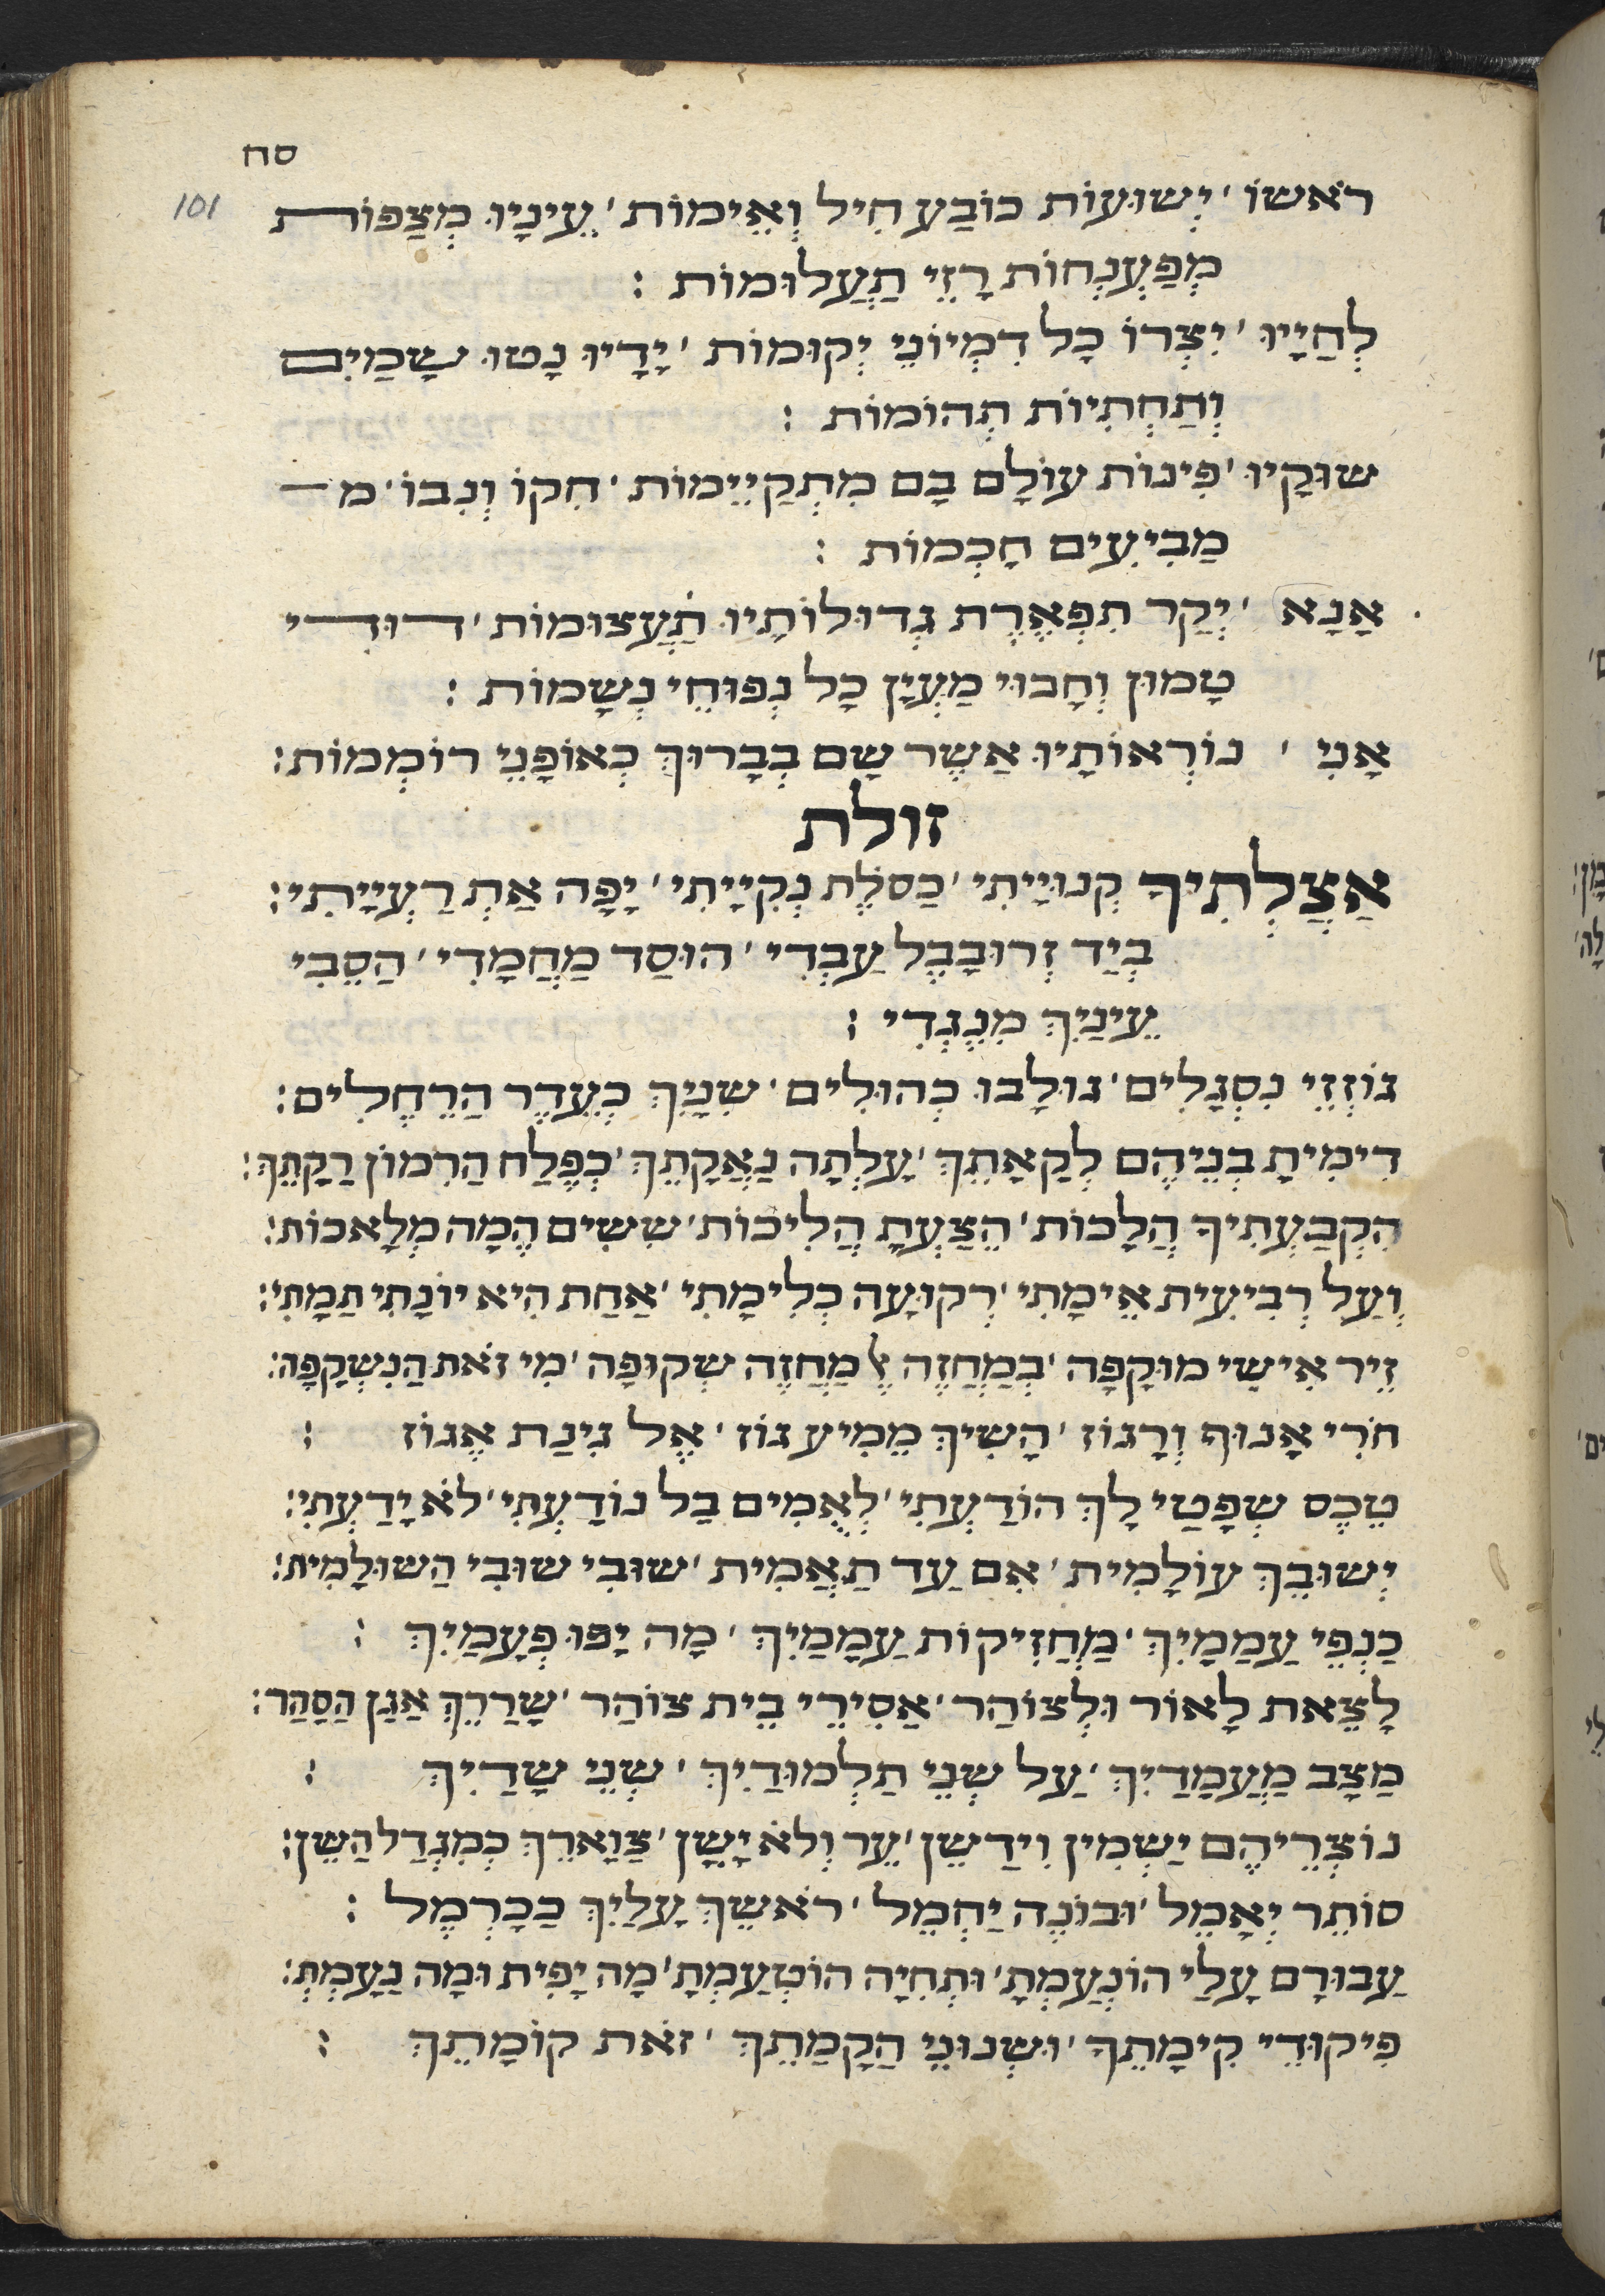 סח
101
רֹאשׁוֹ ׳ יְשׁוּעוֹת כּוֹבַע חַיִל וְאֵימוֹת ׳ עֵינָיו מְצַפּוֹת
מְפַעְנְחוֹת רָזֵי תַעֲלוּמוֹת :
לְחַיָּיו ׳ יִצְּרוֹ כָל דִמְיוֹנֵי יְקוּמוֹת ׳ יָדָיו נָטוּ שָׁמַיִם
וְתַחְתִּיוֹת תְּהוֹמוֹת :
שׁוּקָיו ׳ פִּינוֹת עוֹלָם בָּם מִתְקַיְּימוֹת ׳ חִקּוֹ וְנִבּוֹ ׳ מ
מַבִּיעִים חָכְמוֹת :
אָנָא ׳ יְקַר תִּפְאֶרֶת גְּדוּלוֹתָיו תַעֲצוּמוֹת ׳ דּוּדִי
טָמוּן וְחָבוּי מֵעֵין כָּל נְפוּחֵי נְשָׁמוֹת :
אָנִי ׳ נוֹרְאוֹתָיו אֲשֶׁר שָׂם בְּבָרוּךְ כְּאוֹפָנֵי רוֹמְמוֹת :
זולת
אֲצַלְתִּיךָ קְנוּיָתִי ׳ כַּסֹּלֶת נְקִיָּיתִי ׳ יָפָה אַתְּ רַעְיָיתִי :
בְּיַד זְרוּבָּבֶל עַבְדִּי ׳ הוּסַד מַחֲמָדִי ׳ הָסֵבִּי
עֵינַיִךְ מִנֶּגְדִּי :
גּוֹזְזֵי נִסְגָּלִים ׳ גּוּלָּבוּ כְּהוּלִים ׳ שִׁנַּיִךְ כְּעֵדֶר הָרְחֵלִים :
דִּימִיתָ בְנֵיהֶם לְקָאָתֵךְ ׳ עָלְתָה נַאֲקָתֵךְ ׳ כְּפֶלַח הָרִמּוֹן רַקָּתֵךְ :
הִקְבַּעְתִּיךְ הֲלָכוֹת ׳ הִצַּעְתָּ הֲלִיכוֹת ׳ שִׁשִּׁים הֵמָּה מְלָאכוֹת :
וְעַל רְבִיעִית אֵימָתִי ׳ רְקוּעָה כְּלִימָתִי ׳ אַחַת הִיא יוֹנָתִי תַמָּתִי :
זֵיר אִישַׁי מוּקָּפָה ׳ בְּמֶחֱזָה אֶל מֶחֱזָה שְׁקוּפָה ׳ מִי זֹאת הַנִּשְׁקָפָה :
חֹרִי אָנוּף וְרָגוֹז ׳ הָשִׁיךְ מֵמִיעַ גּוֹז ׳ אֶל גִּינַּת אֱגוֹז :
טֶכֶס שְׁפָטַי לָךְ הוֹדַעְתִּי ׳ לְאֻמִּים בַּל נוֹדַעְתִּי ׳ לֹא יָדַעְתִּי :
יְשׁוּבֵךְ עוֹלָמִית ׳ אִם עַד תַּאֲמִית ׳ שׁוּבִי שׁוּבִי הַשּׁוּלַמִּית :
כַּנְפֵי עֲמַמַיִךְ ׳ מַחֲזִיקוֹת עֲמָמַיִךְ ׳ מַה יָּפוּ פְעָמַיִךְ :
לָצֵאת לָאוֹר וּלְצוֹהַר ׳ אֲסִירֵי בֵית צוֹהַר ׳ שָׁרְרֵךְ אַגַּן הַסַּהַר :
מַצָּב מַעֲמָדַיִךְ ׳ עַל שְׁנֵי תַלְמוּדַיִךְ ׳ שְׁנֵי שָׁדַיִךְ :
נוֹצְרֵיהֶם יַשְׁמִין וִידַשֵּׁן ׳ עֵר וְלֹא יָשֵׁן ׳ צַוָּארֵךְ כְּמִגְדַּל הַשֵּׁן :
סוֹתֵר יְאָמֵל ׳ וּבוֹנֶה יַחְמֵל ׳ רֹאשֵׁךְ עָלַיִךְ כַּכַּרְמֶל :
עֲבוּרָם עָלַי הוֹנְעַמְתָּ ׳ וּתְחִיָּה הוֹטְעַמְתָּ ׳ מַה יָּפִית וּמַה נָּעַמְתְּ :
פִּיקּוּדֵי קִיּמָתֵךְ ׳ וּשְׁנוּנֵי הֲקָמָתֵךְ ׳ זֹאת קוֹמָתֵךְ :